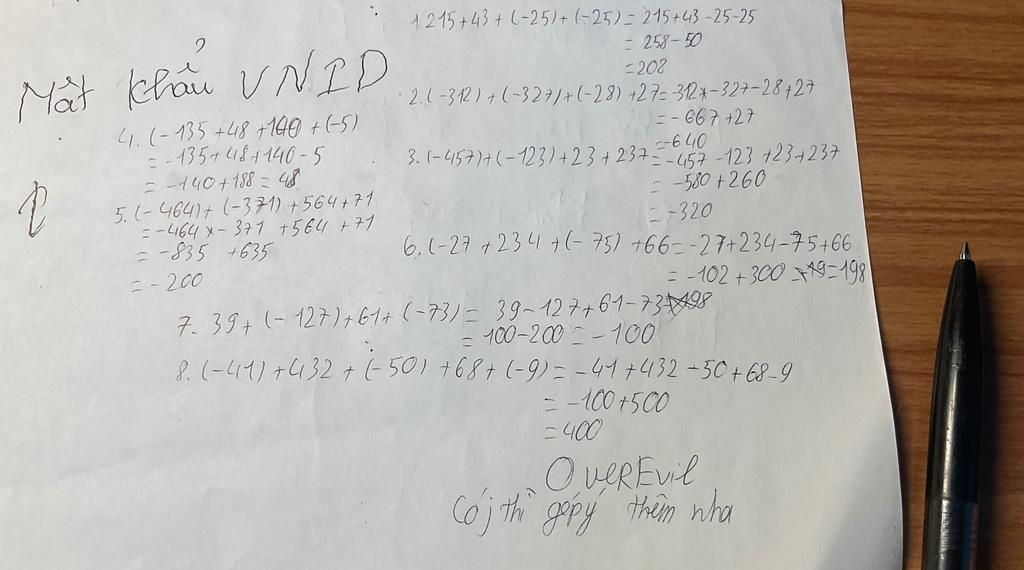 1. 215+43+(-25)+(-25) = 215+43-25-25
= 258-50
= 208
Mật khẩu VNID
2. (-312)+(-327)+(-28)+27=-312+-327-28+27
= -667+27
=-640
4. (-135+48+140+(-5)
= -135+48+140-5
= -140+188 = 48
3. (-457)+(-123)+23+237=-457-123+23+237
= -580+260
= -320
5. (-464)+(-371)+564+71
=-464+-371+564+71
= -835+635
= -200
6. (-27+234+(-75)+66=-27+234-75+66
= -102+300 =198
7. 39+(-127)+61+(-73)= 39-127+61-73
= 100-200 = -100
8. (-41)+432+(-50)+68+(-9)=-41+432-50+68-9
= -100+500
= 400
OverEvil
Có j thì góp ý thêm nha